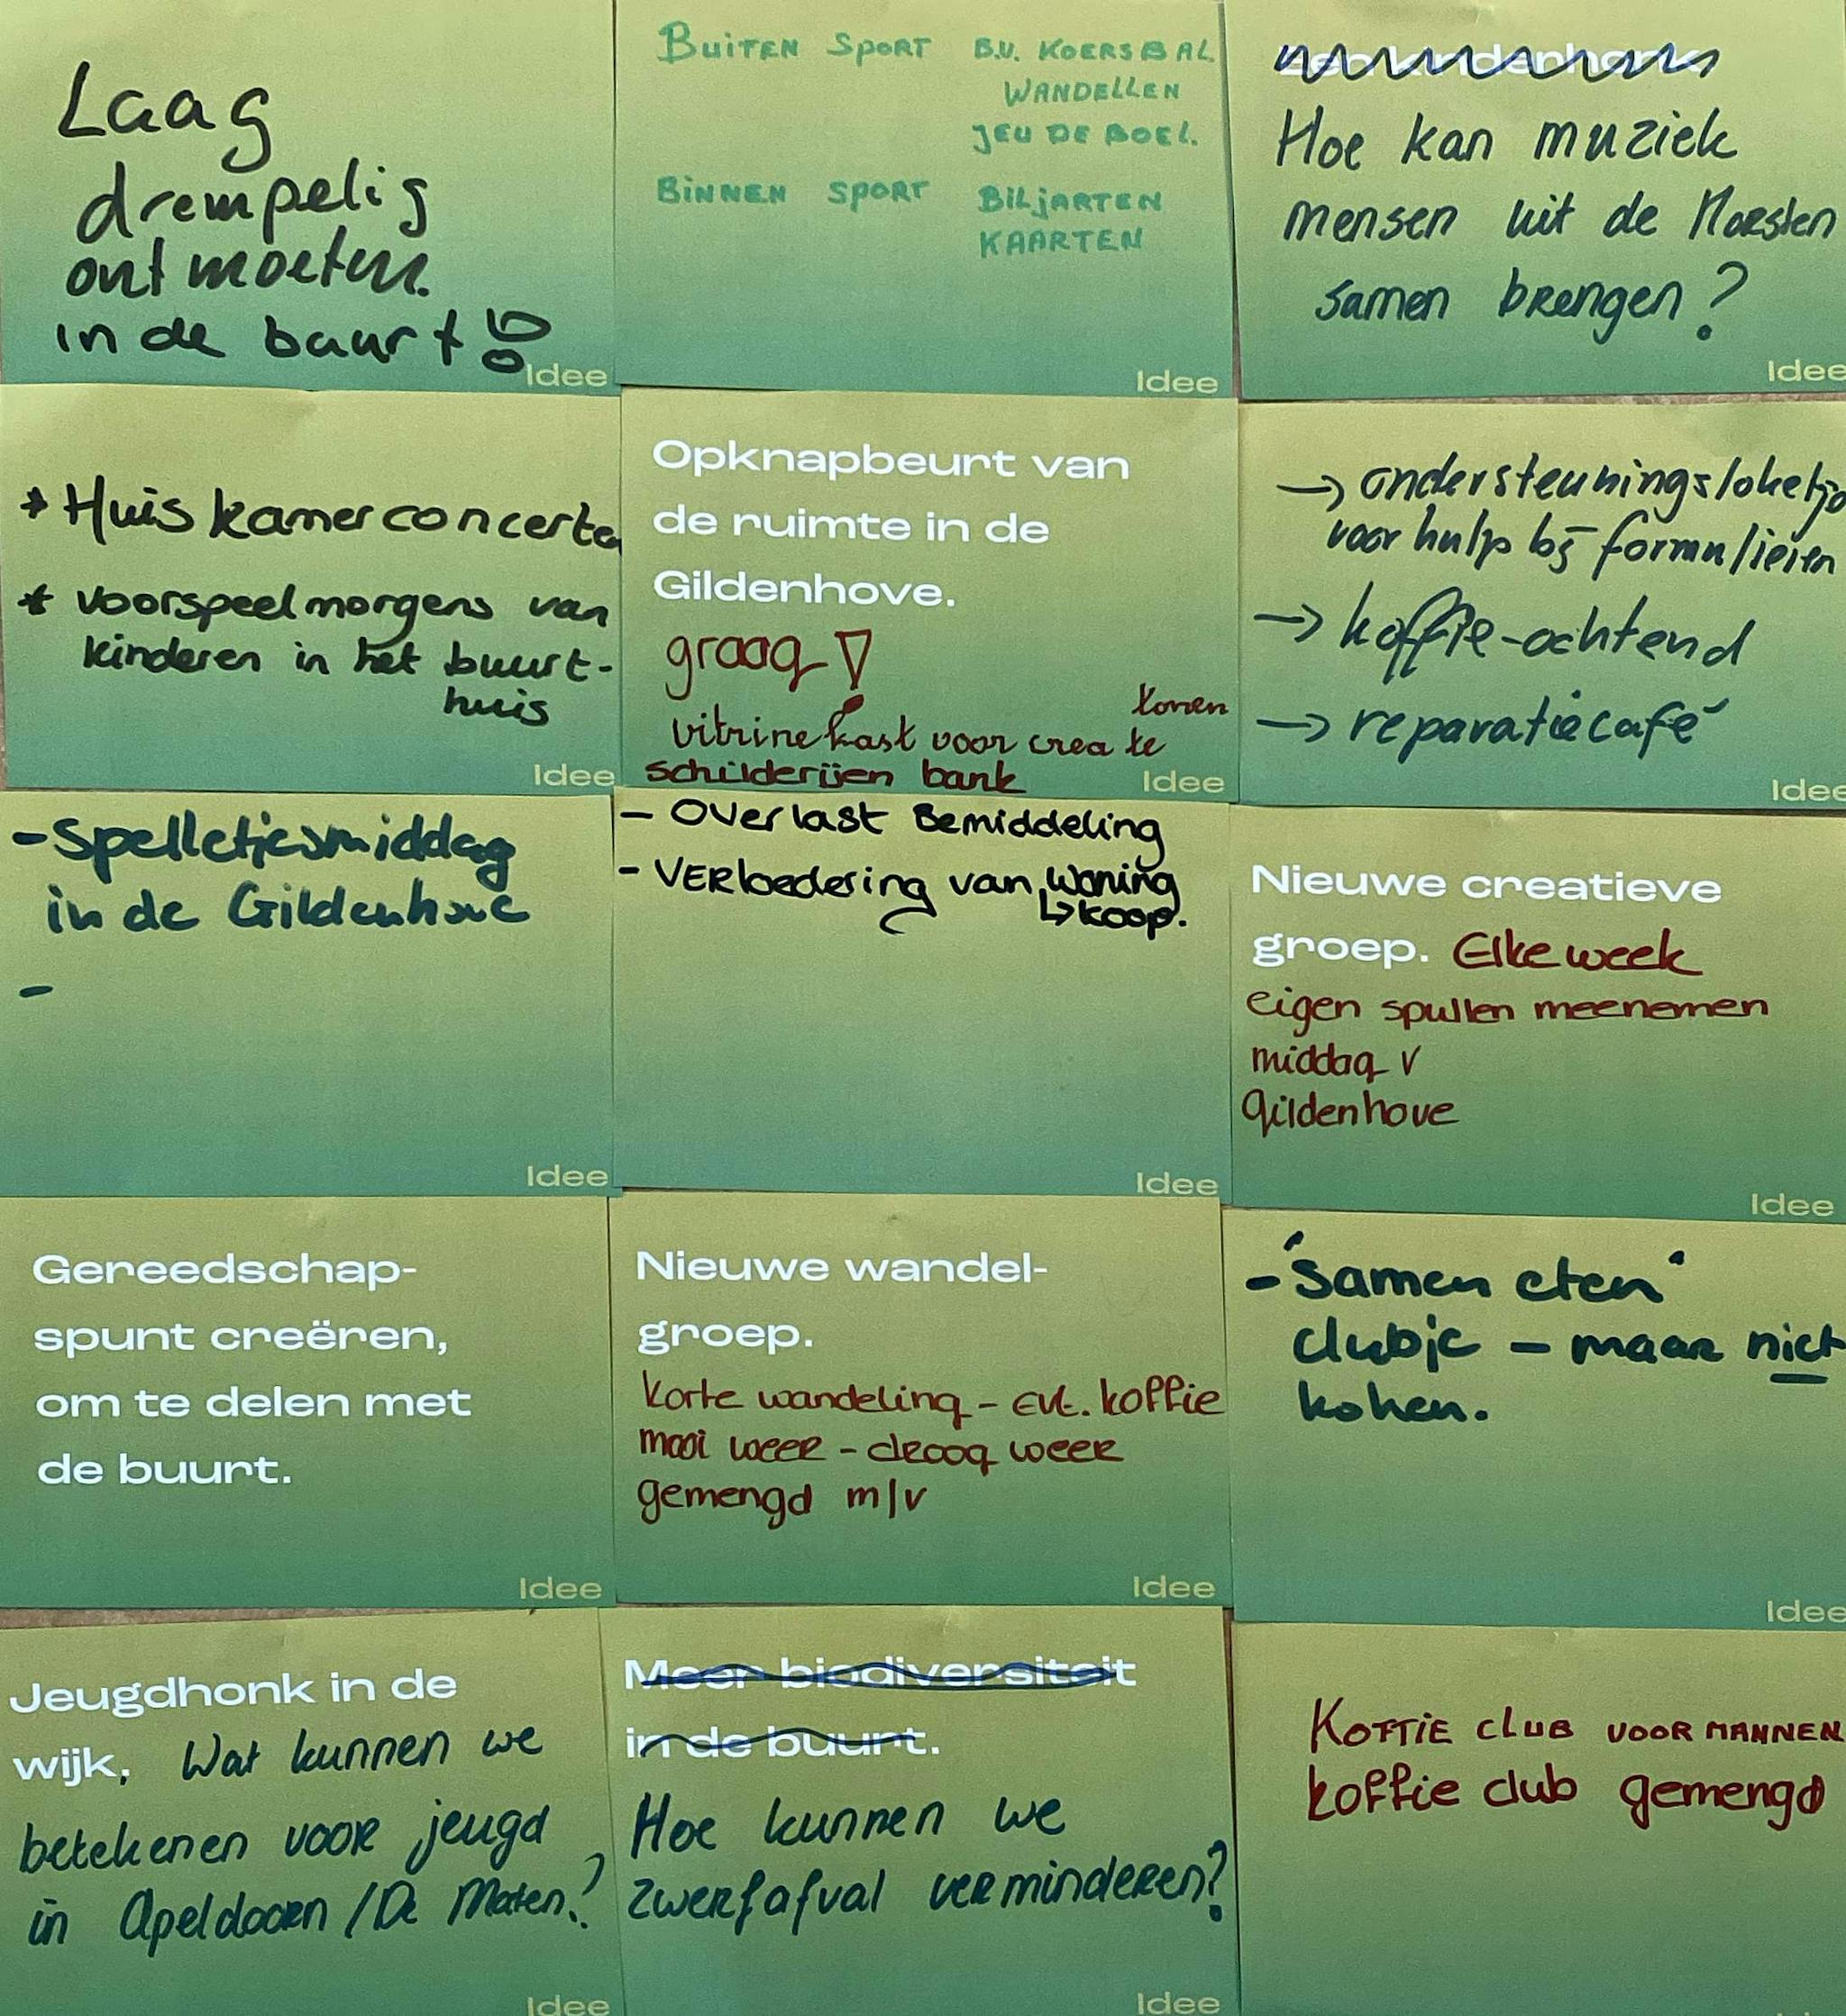 Laag
drempelig
ontmoeten
in de buurt!
Idee
Buiten Sport B.V. Koersbal
Wandellen
Jeu de Boel.
Binnen Sport Biljarten
Kaarten
Idee
Een kinderhonk
Hoe kan muziek
mensen uit de
samen brengen?
Idee
* Huiskamerconcerte
* voorspeelmorgens van
kinderen in het buurt-
huis
Idee
Opknapbeurt van
de ruimte in de
Gildenhove.
graag!
tonen
vitrinekast voor crea te
schilderijen bank
Idee
→ ondersteuningsloketje
voor hulp bij formulieren
→ koffie-ochtend
→ reparatiecafé
Idee
- Spelletjesmiddag
in de Gildenhove
-
Idee
- Overlast Bemiddeling
- Verloedering van woning
↳ koop.
Idee
Nieuwe creatieve
groep. Elke week
eigen spullen meenemen
middag V
Gildenhove
Idee
Gereedschap-
spunt creëren,
om te delen met
de buurt.
Idee
Nieuwe wandel-
groep.
Korte wandeling - evt. koffie
mooi weer - droog weer
gemengd m/v
Idee
- "Samen eten"
clubje - maar niet
koken.
Idee
Jeugdhonk in de
wijk, Wat kunnen we
betekenen voor jeugd
in Apeldoorn / De Maten?
Idee
Meer biodiversiteit
in de buurt.
Hoe kunnen we
zwerfafval verminderen?
Idee
Koffie club voor mannen
koffie club gemengd